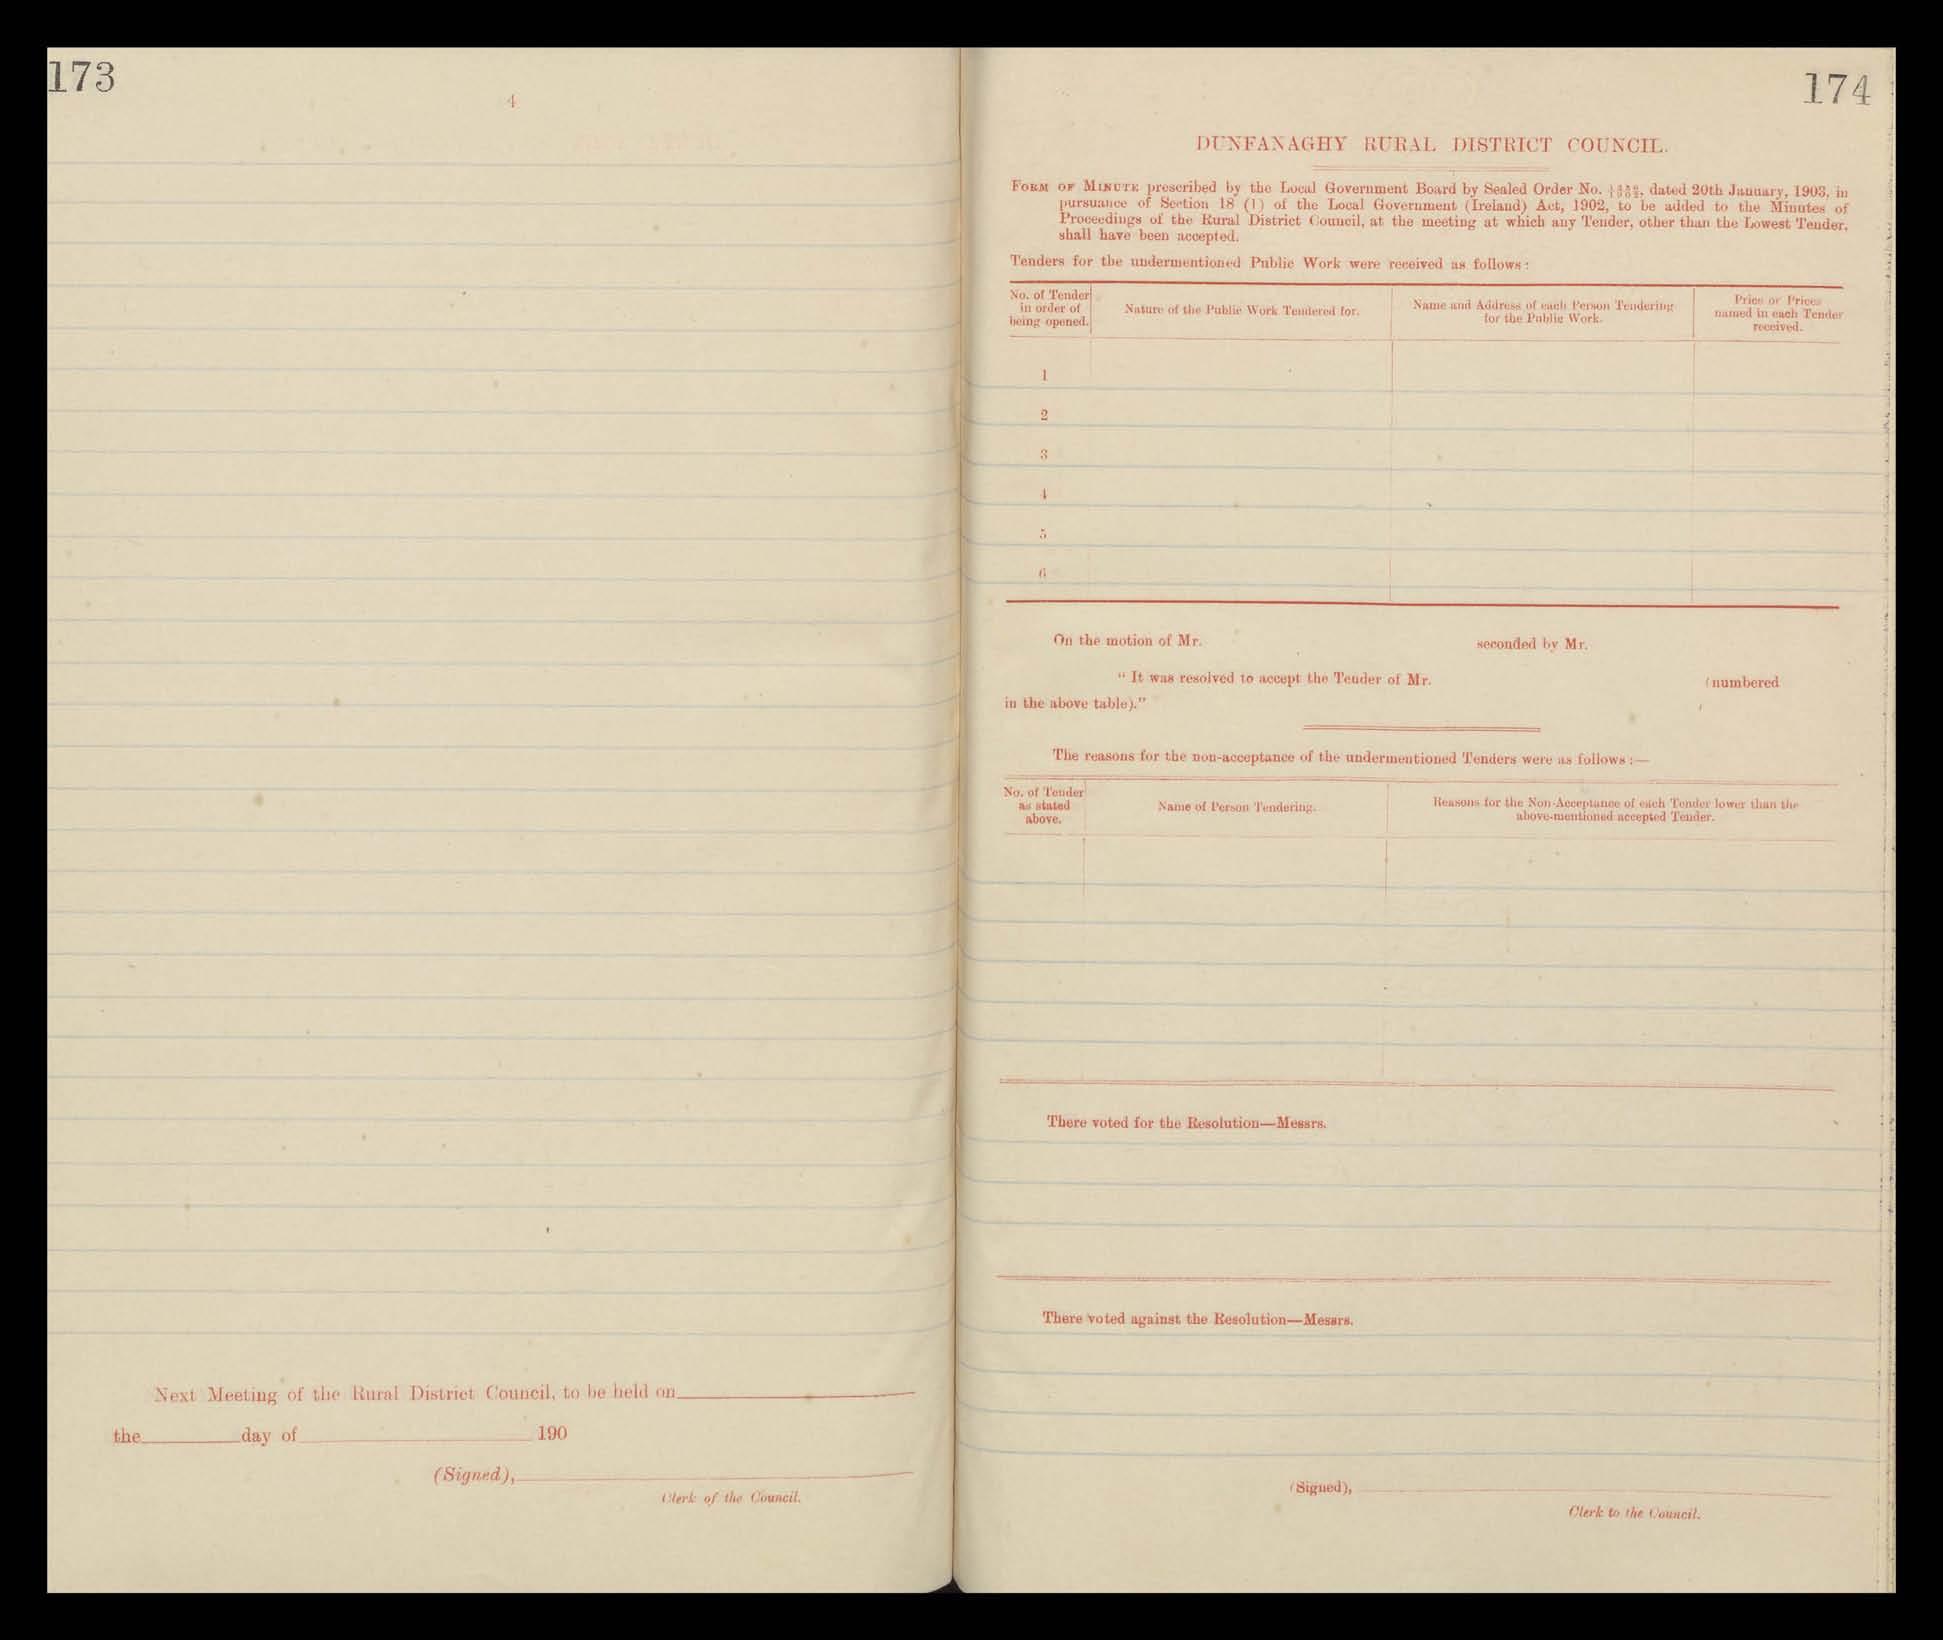 173
4
Next Meeting of the Rural District Council, to be held on
the day of 190
(Signed),
Clerk of the Council.
174
DUNFANAGHY RURAL DISTRICT COUNCIL.
FORM OF MINUTE prescribed by the Local Government Board by Sealed Order No. dated 20th January, 1903, in
pursuance of Section 18 (1) of the Local Government (Ireland) Act, 1902, to be added to the Minutes of
Proceedings of the Rural District Council, at the meeting at which any Tender, other than the Lowest Tender,
shall have been accepted.
Tenders for the undermentioned Public Work were received as follows:
No. of Tender
in order of
being opened.
Nature of the Public Work Tendered for.
Name and Address of each Person Tendering
for the Public Work.
Price or Prices
named in each Tender
received.
1
2
3
4
5
6
On the motion of Mr. seconded by Mr.
"It was resolved to accept the Tender of Mr. (numbered
in the above table)."
The reasons for the non-acceptance of the undermentioned Tenders were as follows:—
No. of Tender
as stated
above.
Name of Person Tendering.
Reasons for the Non-Acceptance of each Tender lower than the
above-mentioned accepted Tender.
There voted for the Resolution—Messrs.
There voted against the Resolution—Messrs.
(Signed),
Clerk to the Council.